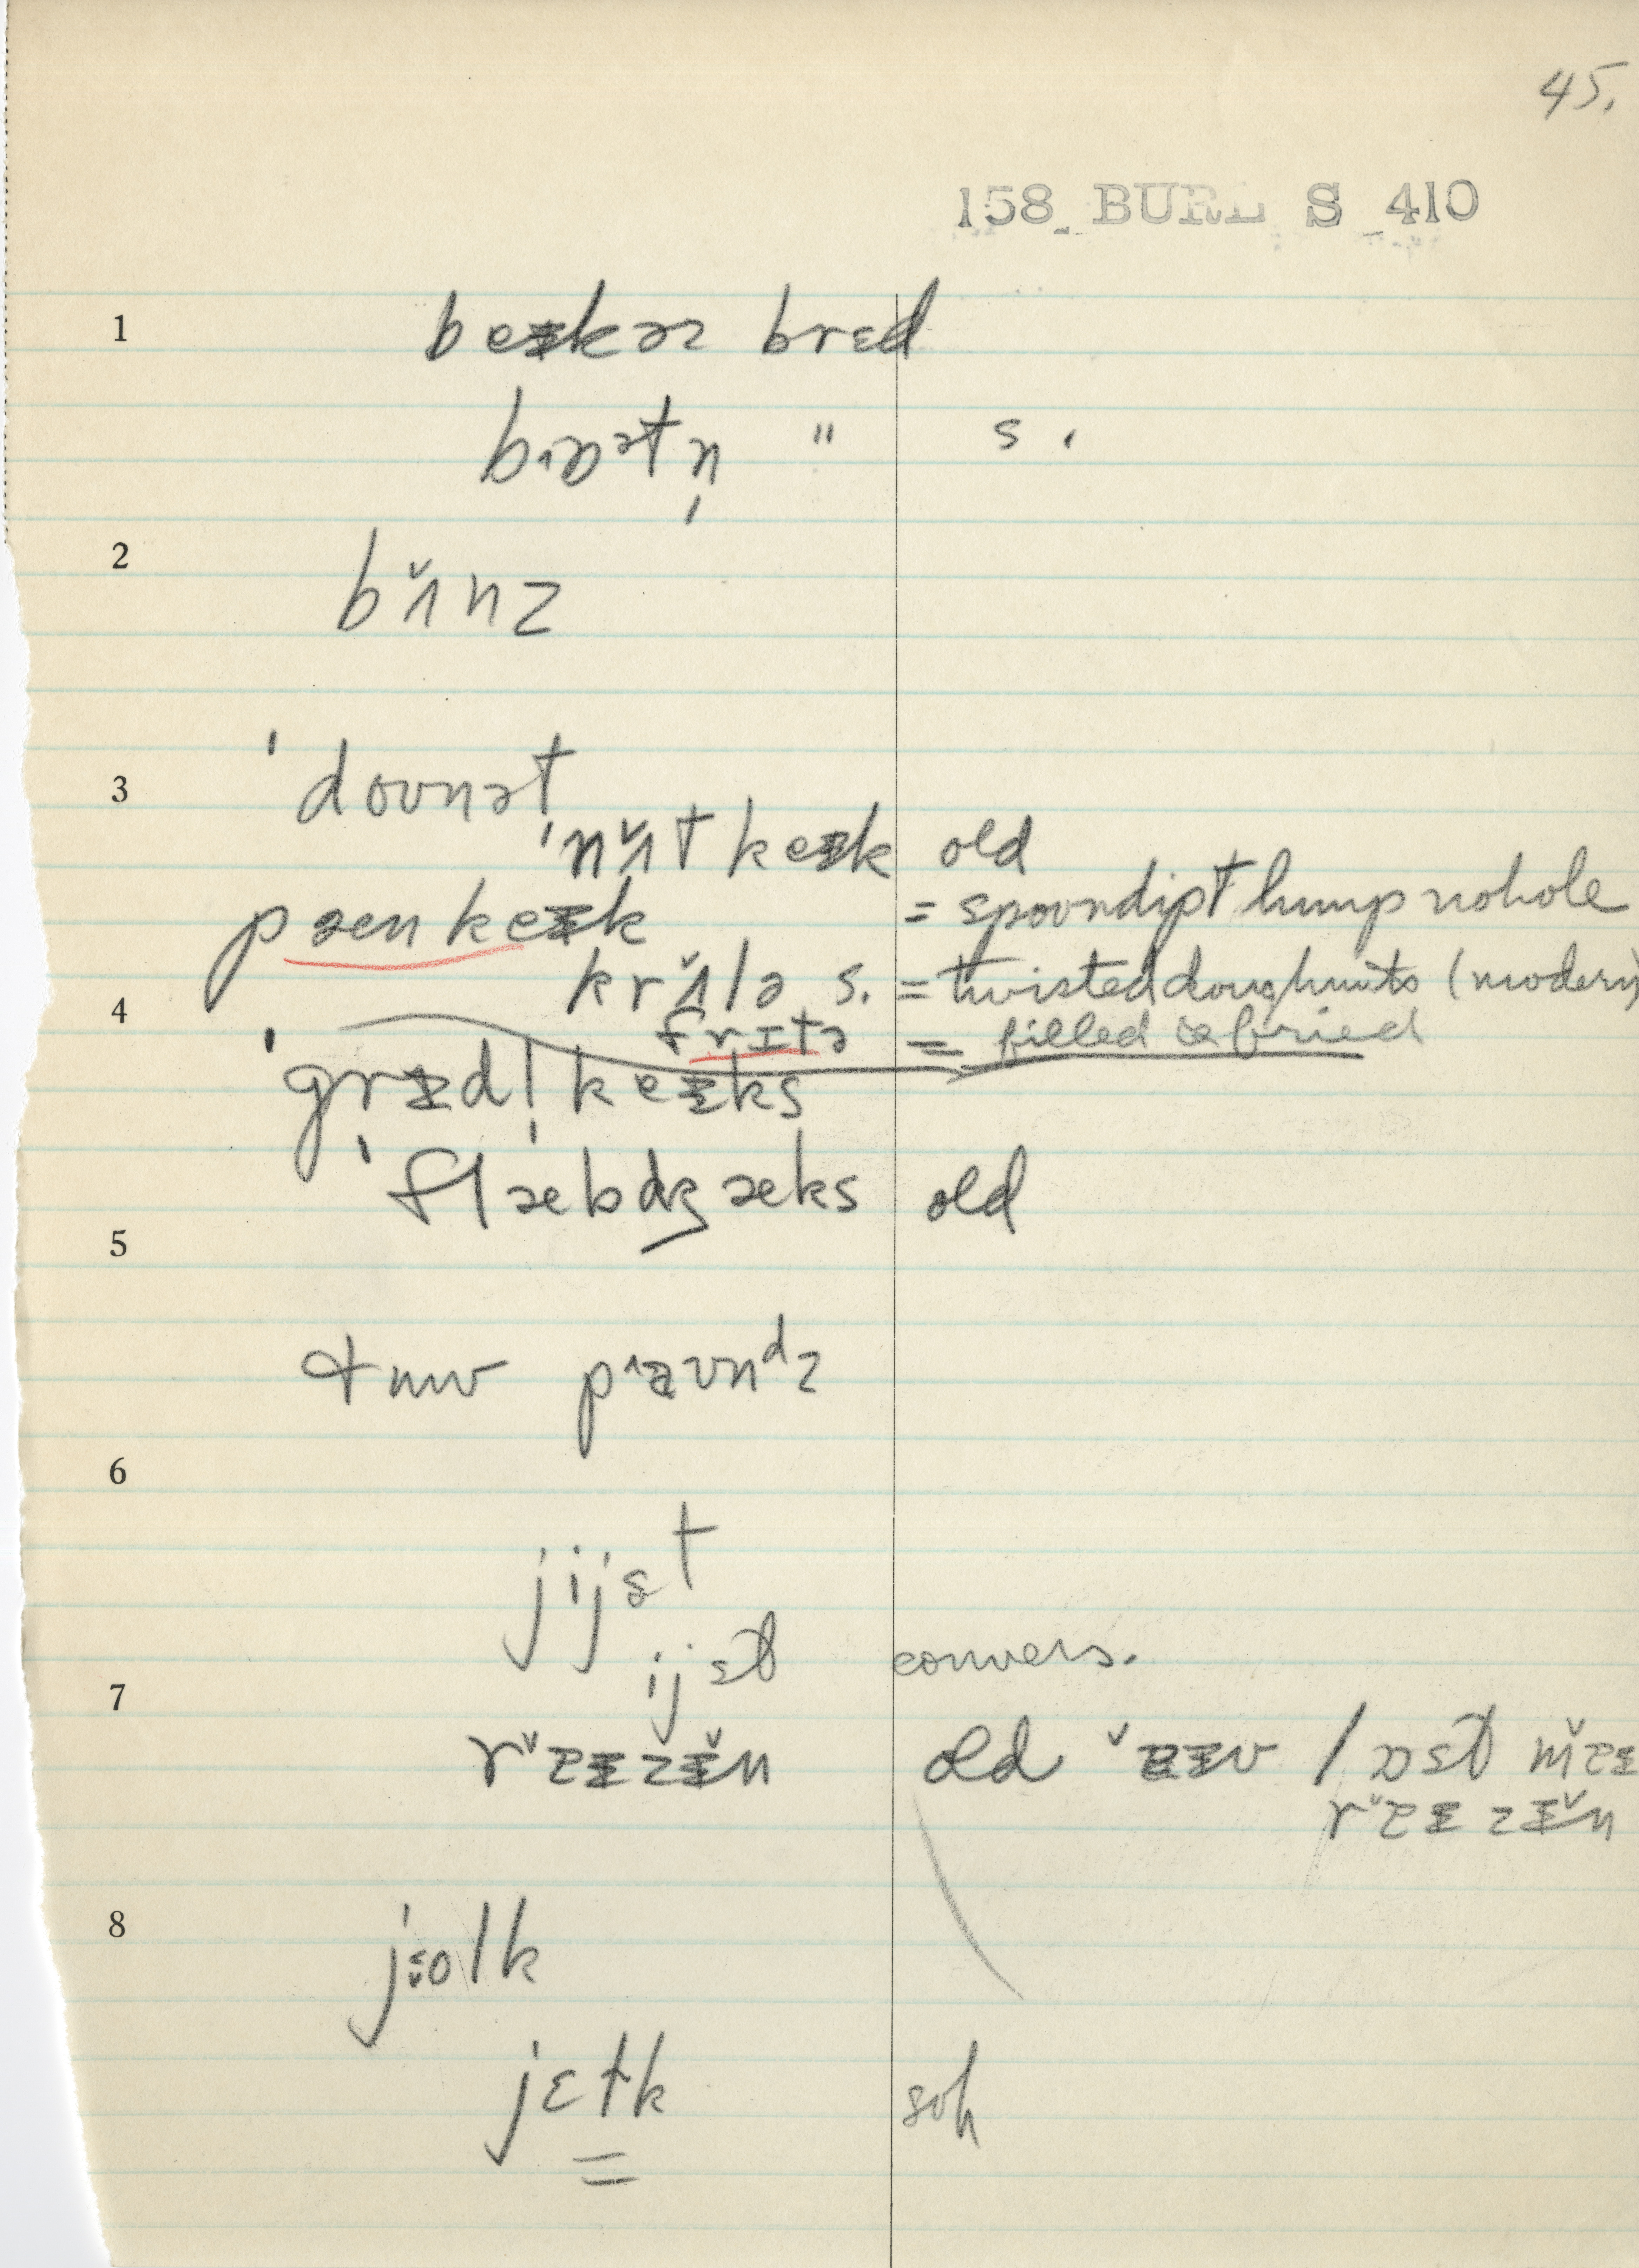 45.
158 BURL S 410
1 beɪkəz brɛd
bɒstn̩ " s.
2 bʌ̌nz
3 ˈdoʊnət
ˈnʌ̌t keɪk old
pæn keɪk = spoondipt lump no hole
krʌ̌lə s. = twisted doughnuts (modern)
4 frɪtə = filled & fried
ˈgrɪdl̩ keɪks
ˈflæbdʒæks old
5
pʌaʊnᵈz
6
jijst
ijst convers.
7
old
8 jolk
jɛɫk